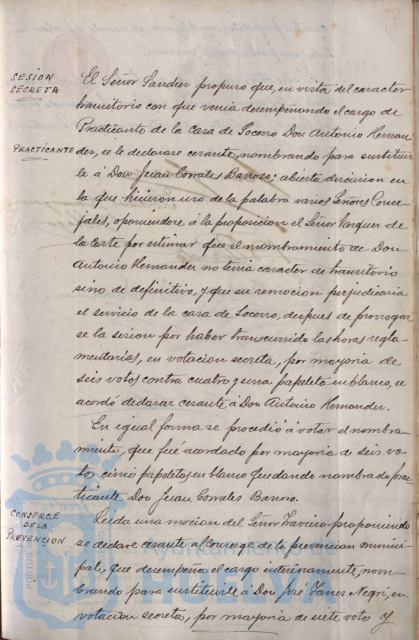 SESION
SECRETA
El Señor Sandier propuso que, en vista del caracter
transitorio con que venia desempeñando el cargo de
Practicante de la Casa de Socorro Don Antonio Hernan
PRACTICANTE
dez, se le declarase cesante, nombrando para sustituir
le á Don Juan Corrales Barroso; abierta discusion en
la que hicieron uso de la palabra varios Señores Conce
jales, oponiendose á la proposicion el Señor Vazquez de
la Corte por estimar que el nombramiento de Don
Antonio Hernandez no tenia caracter de transitorio
sino de definitivo, y que su remocion perjudicaria
el servicio de la casa de Socorro, despues de prorrogar
se la sesion por haber transcurrido las horas regla-
mentarias, en votacion secreta, por mayoria de
seis votos contra cuatro y una papeleta en blanco, se
acordó declarar cesante á Don Antonio Hernandez.
En igual forma se procedió á votar el nombra
miento, que fué acordado por mayoria de seis vo
tos, cinco papeletas en blanco quedando nombrado prac
ticante Don Juan Corrales Barroso.
CONSERGE
DE LA
PREVENCION
Leida una mocion del Señor Traviño proponiendo
se declare cesante al Conserge de la prevencion munici-
pal, que desempeña el cargo interinamente, nom-
brando para sustituirle á Don José Negri, en
votacion secreta, por mayoria de siete votos y
Ayuntamiento de
HUELVA